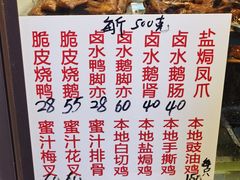 每斤 500克
脆皮烧鸭 28
脆皮烧鹅 55
卤水鸭脚亦 28
卤水鹅脚亦 60
卤水鹅肾 40
卤水鹅肠 40
盐焗凤爪
蜜汁梅叉
蜜汁花叉
蜜汁排骨
本地白切鸡
本地盐焗鸡
本地手撕鸡
本地豉油鸡